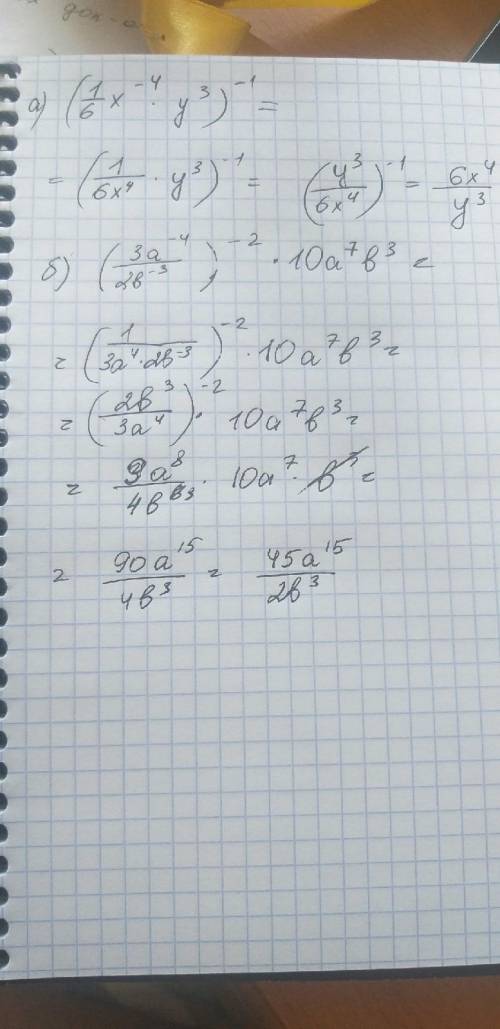 а) (1/6 x⁻⁴ · y³)⁻¹ =
= (1/6x⁴ · y³)⁻¹ = (y³/6x⁴)⁻¹ = 6x⁴/y³
б) (3a⁻⁴/2b⁻³)⁻² · 10a⁷b³ =
= (1/3a⁴·2b⁻³)⁻² · 10a⁷b³ =
= (2b³/3a⁴)⁻² · 10a⁷b³ =
= 9a⁸/4b⁶³ · 10a⁷ · b³ =
= 90a¹⁵/4b³ = 45a¹⁵/2b³